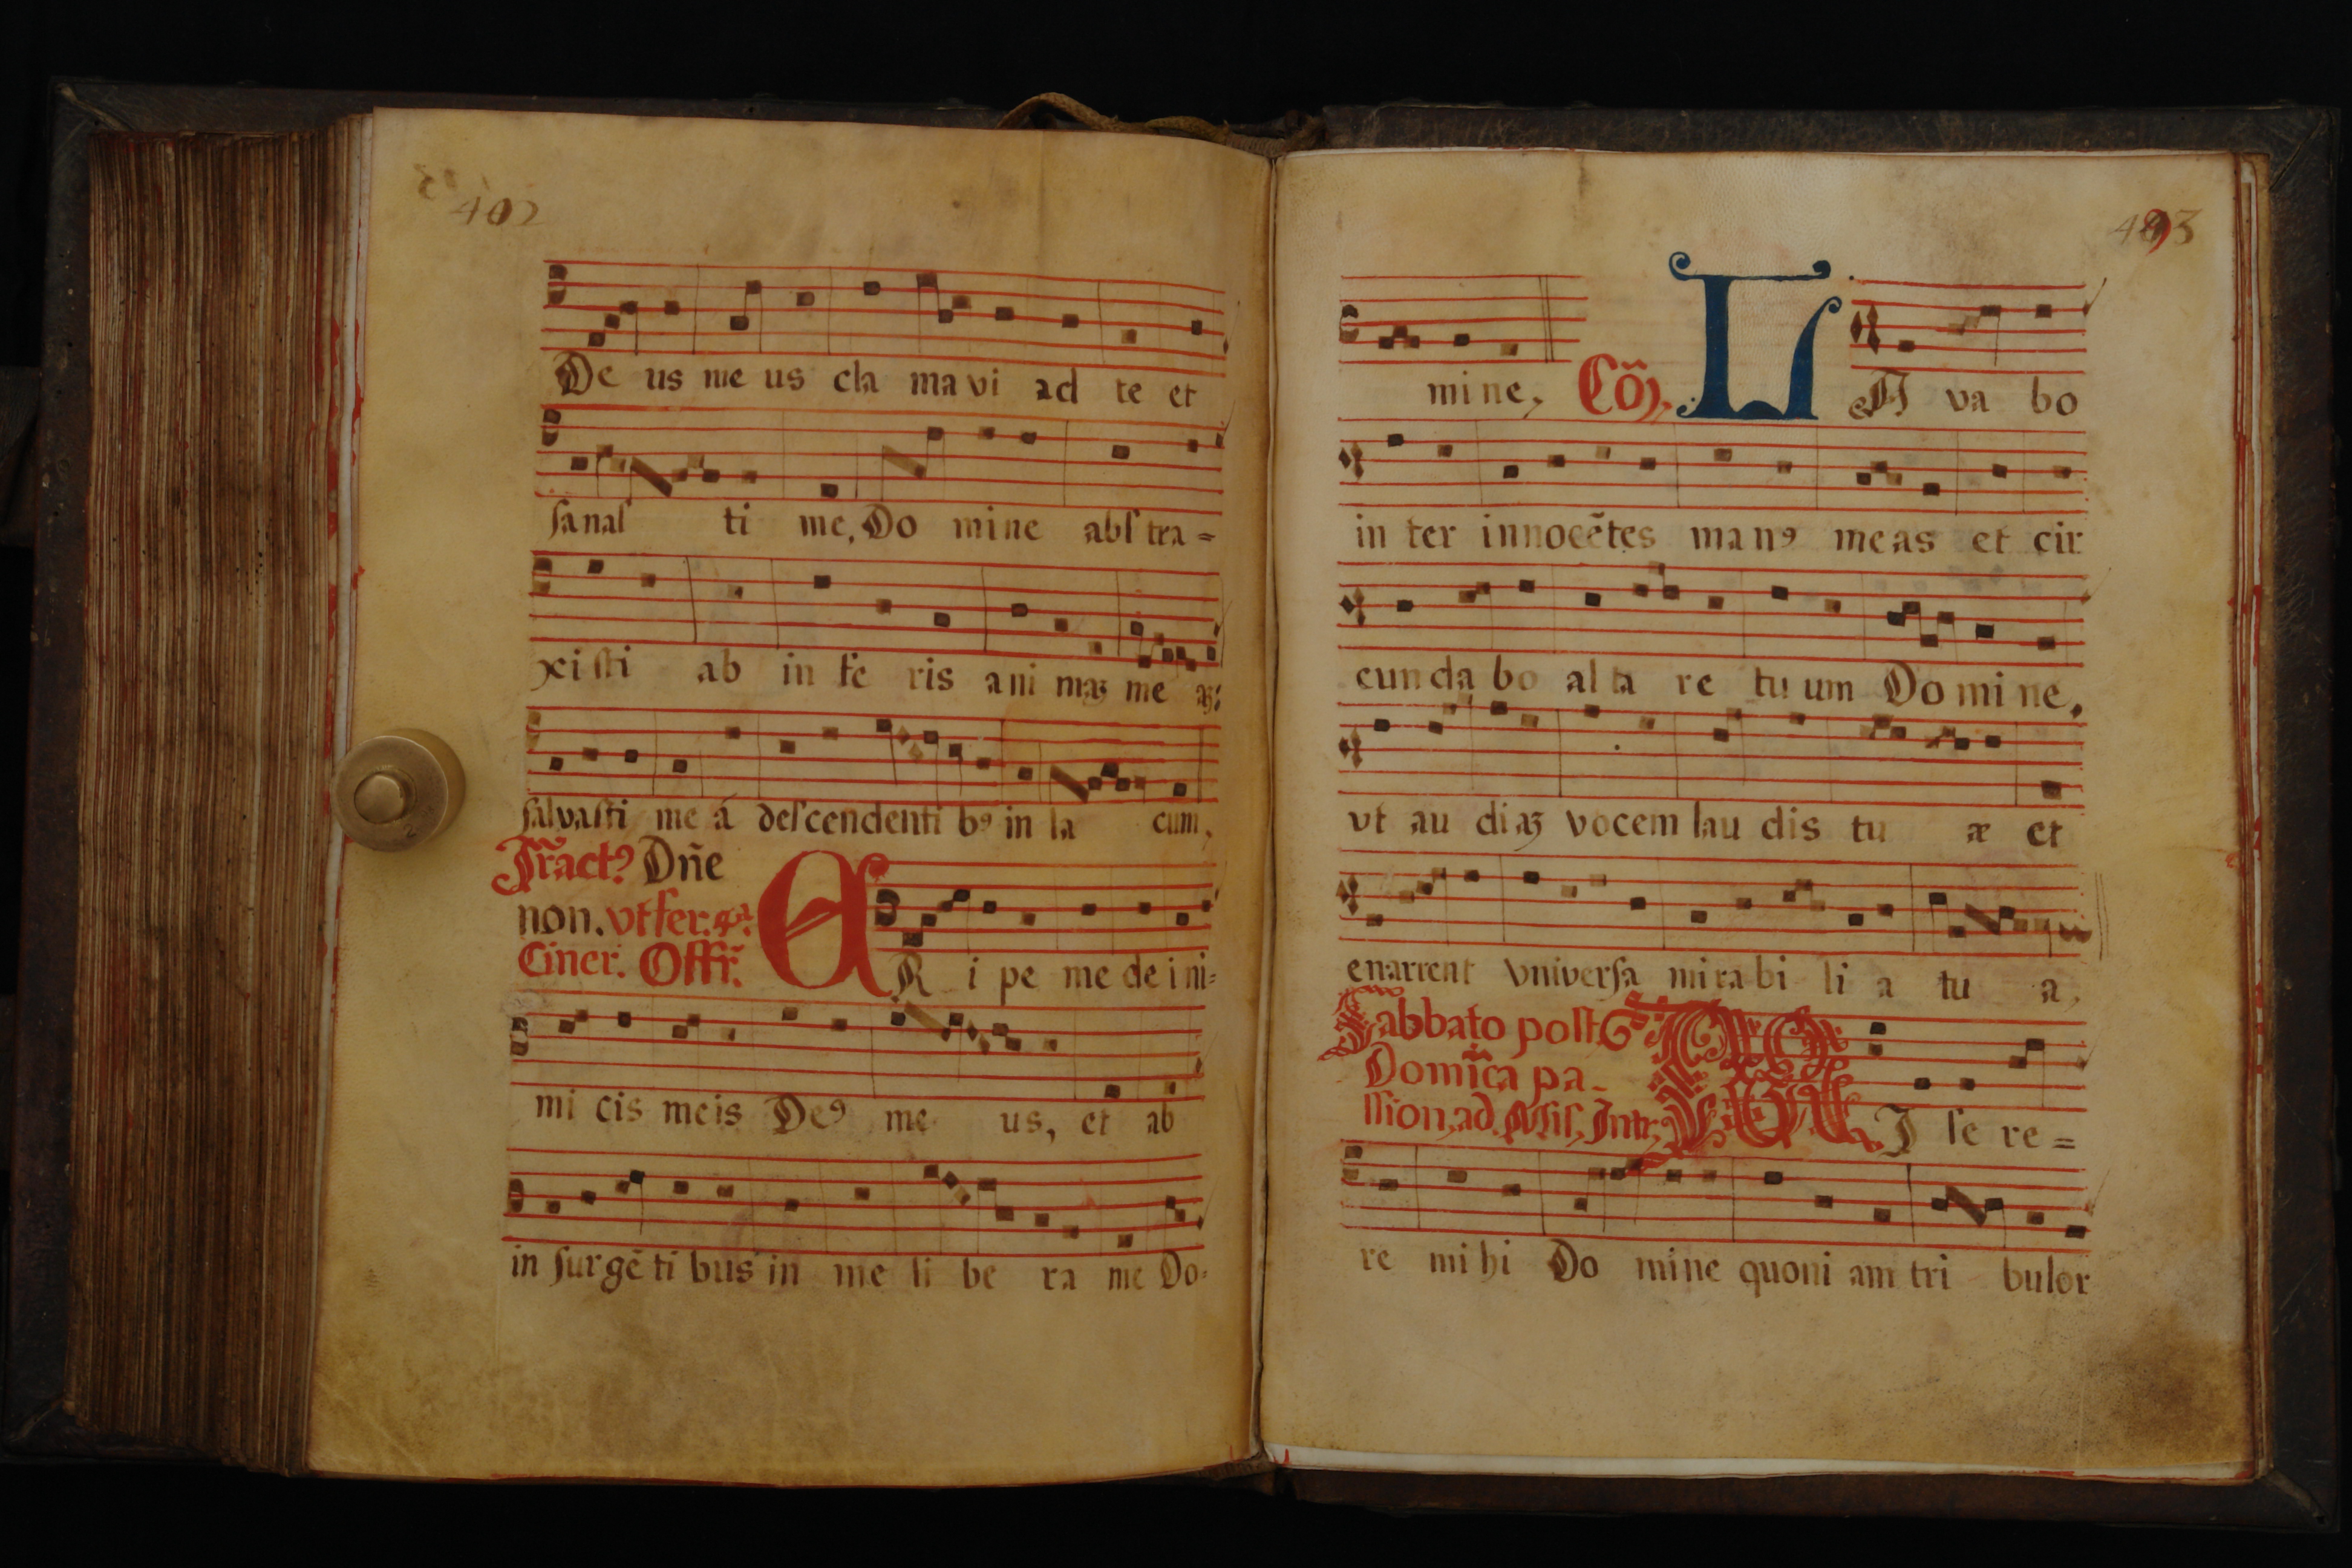 402
De us me us cla ma vi ad te et
ſa naſ ti me, Do mine abſ tra =
xi ſti ab in fe ris ani maȝ me aȝ:
ſalvaſti me á deſcendenti bꝰ in la cum,
Tract? Dñe
non. vt fer. 4ª.
Ciner. Offr̃.
E R i pe me de i ni=
mi cis meis Deꝰ me us, et ab
in ſurgẽ ti bus in me li be ra me Do=
403
mi ne, Cõ, L A va bo
in ter innocẽtes manꝰ meas et cir
cunda bo alta re tu um Do mi ne,
vt au diaȝ vocem lau dis tu æ et
enarrent vniverſa mi ra bi li a tu a,
Sabbato poſt
Domĩca pa-
ſſion, ad Miſ, Intr, M I ſe re =
re mi hi Do mine quoni am tri bulor